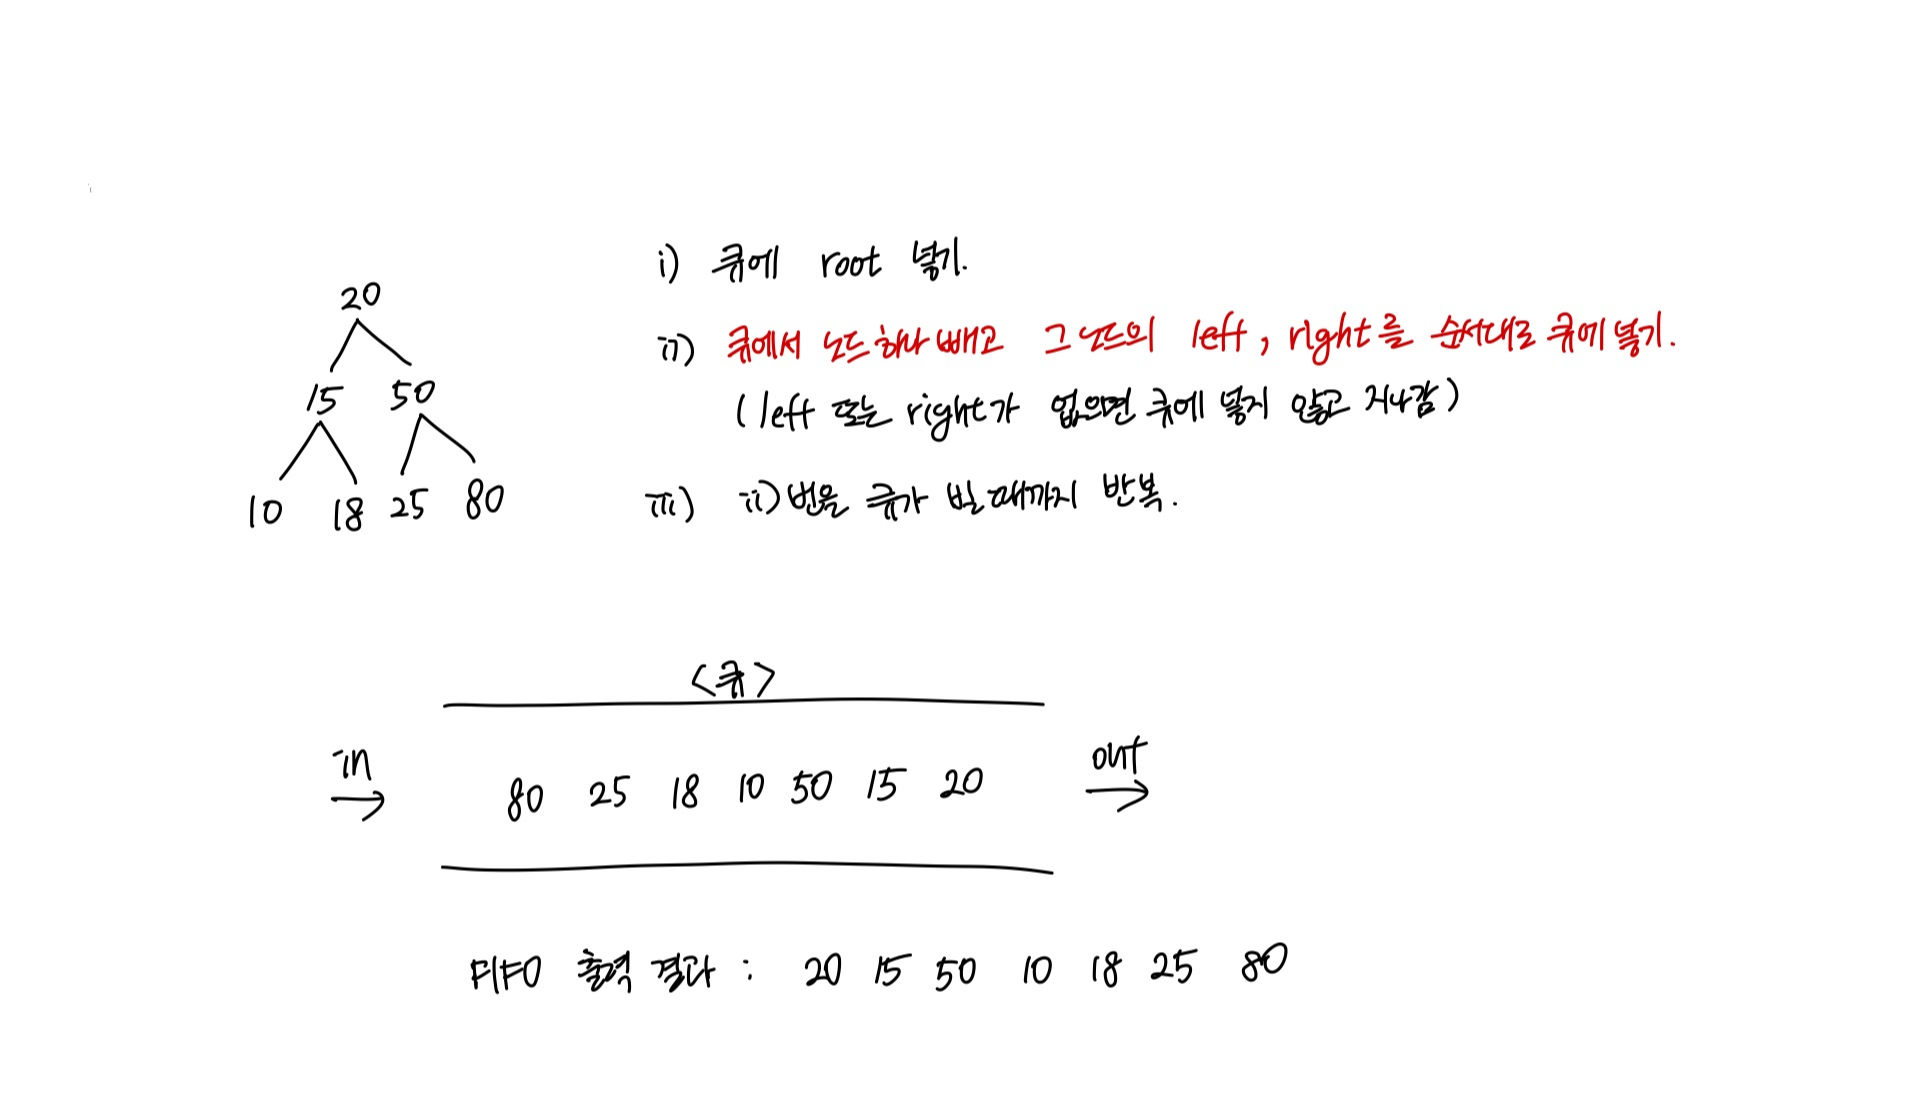 i) 큐에 root 넣기.
20
ii) 큐에서 노드 하나 빼고 그 노드의 left, right를 순서대로 큐에 넣기.
15 50
(left 또는 right가 없으면 큐에 넣지 않고 지나감)
10 18 25 80
iii) ii)번을 큐가 빌 때까지 반복.
<큐>
in
out
80 25 18 10 50 15 20
FIFO 출력 결과 : 20 15 50 10 18 25 80